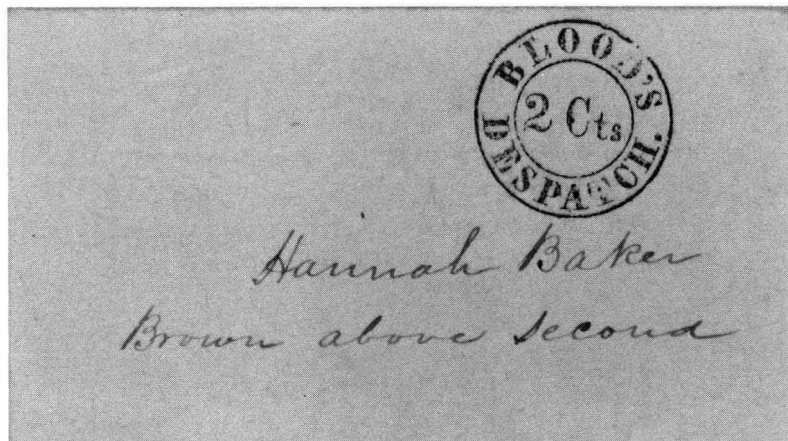 BLOOD'S
2 Cts
DESPATCH.
Hannah Baker
Brown above Second